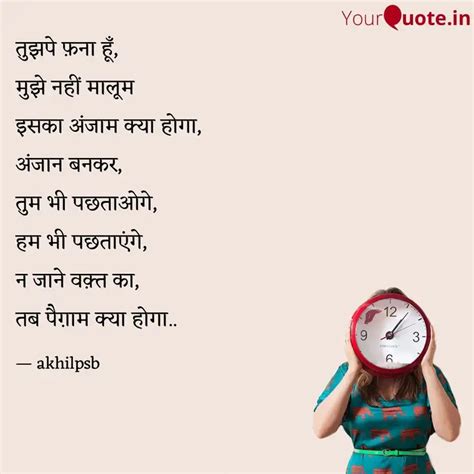 YourQuote.in
तुझपे फ़ना हूँ,
मुझे नहीं मालूम
इसका अंजाम क्या होगा,
अंजान बनकर,
तुम भी पछताओगे,
हम भी पछताएंगे,
न जाने वक़्त का,
तब पैग़ाम क्या होगा..
— akhilpsb
12
1
2
3
4
5
6
9